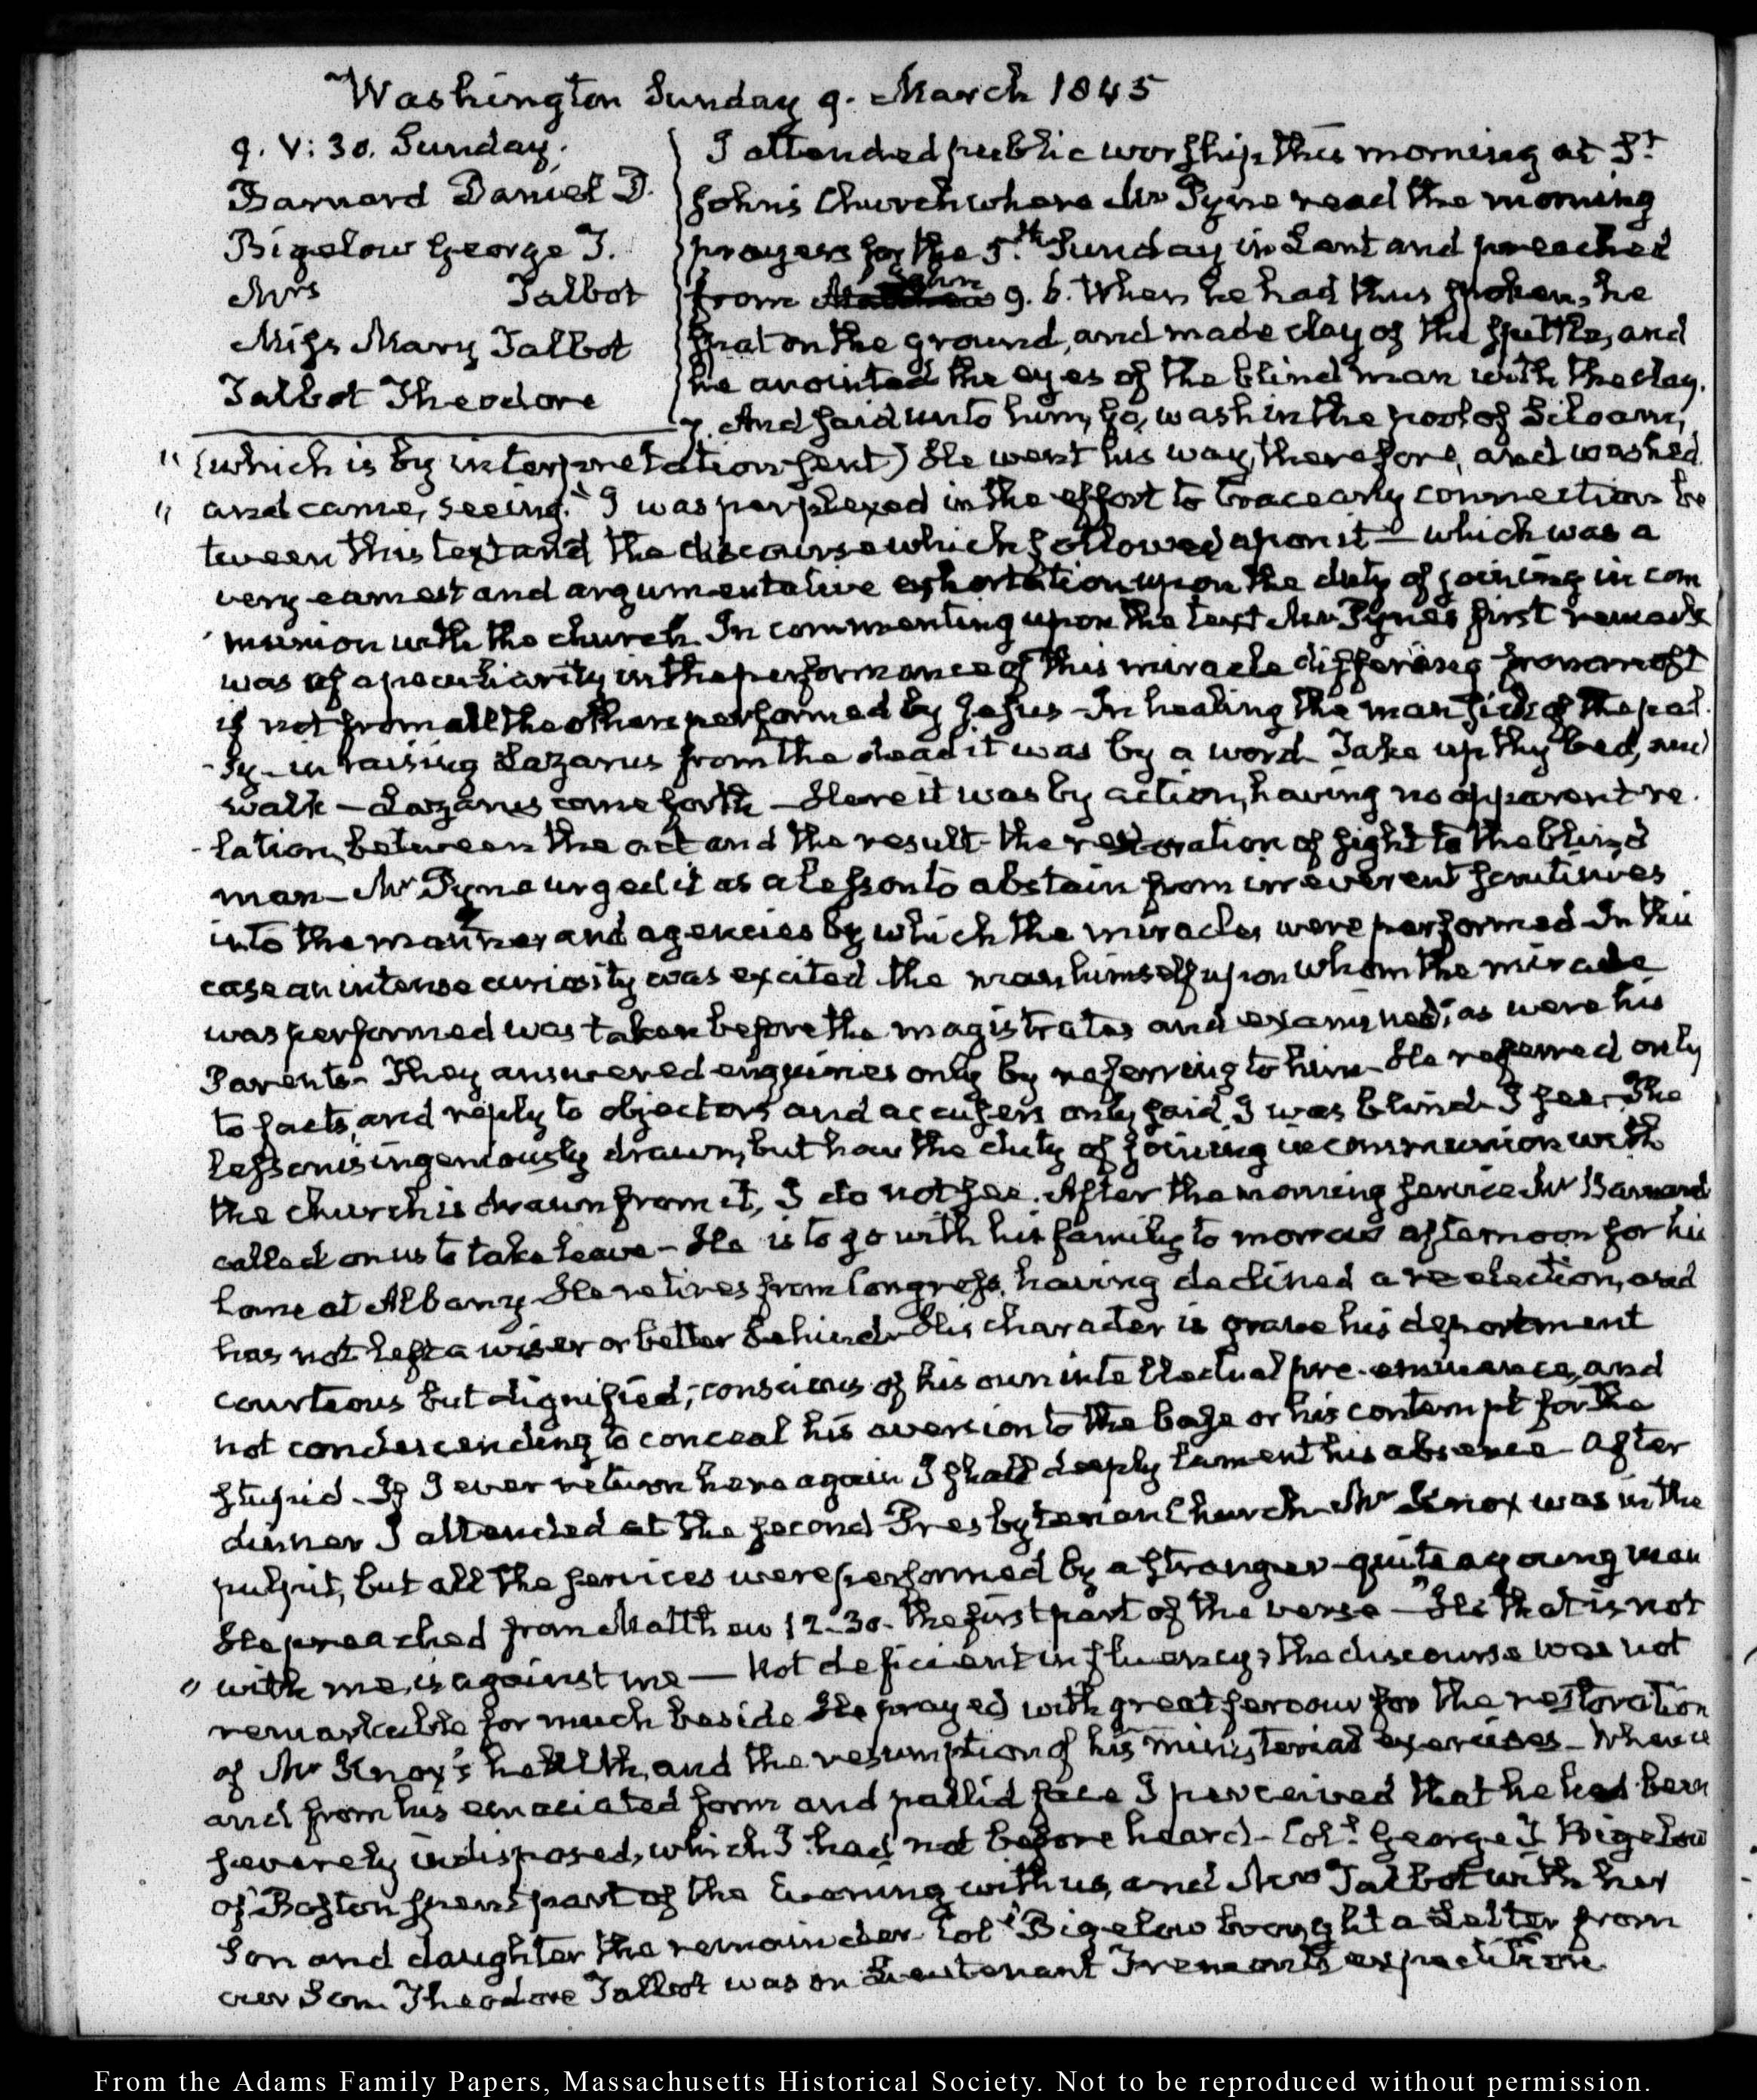 Washington Sunday 9. March 1845
9. V: 30. Sunday.
Barnard Daniel D.
Bigelow George T.
Mrs Talbot
Miss Mary Talbot
Talbot Theodore
I attended public worship this morning at St
John's Church where Mr Pyne read the morning
prayers for the 5.th Sunday in Lent and preached
from John 9. 6. When he had thus spoken, he
spat on the ground, and made clay of the spittle, and
he anointed the eyes of the blind man with the clay.
7. And said unto him, Go, wash in the pool of Siloam,
" (which is by interpretation sent) He went his way, therefore, and washed
" and came, seeing." I was perplexed in the effort to trace any connection be
tween this text and the discourse which followed upon it — which was a
very earnest and argumentative exhortation upon the duty of joining in com
munion with the church. In commenting upon the text Mr Pyne's first remark
was of a peculiarity in the performance of this miracle differing from most
if not from all the others performed by Jesus - In healing the man sick of the pal-
-sy - in raising Lazarus from the dead it was by a word. Take up thy bed, and
walk — Lazarus come forth — Here it was by action, having no apparent re-
-lation, between the act and the result - the restoration of sight to the blind
man — Mr Pyne urged it as a lesson to abstain from irreverent scrutinies
into the manner and agencies by which the miracles were performed - In this
case an intense curiosity was excited. the man himself upon whom the miracle
was performed was taken before the magistrates and examined; as were his
Parents - They answered enquiries only by referring to him - He referred only
to facts, and reply to objectors and accusers only said, I was blind - I see - The
lesson is ingeniously drawn, but how the duty of joining in communion with
the church is drawn from it, I do not see. After the morning service Mr Barnard
called on us to take leave - He is to go with his family to morrow afternoon for his
home at Albany. He retires from Congress, having declined a re-election, and
has not left a wiser or better behind - His character is grave his deportment
courteous but dignified; conscious of his own intellectual pre-eminence, and
not condescending to conceal his aversion to the base or his contempt for the
stupid - If I ever return here again I shall deeply lament his absence - After
dinner I attended at the second Presbyterian Church - Mr Knox was in the
pulpit, but all the services were performed by a stranger - quite a young man
He preached from Matthew 12. 30. the first part of the verse — "He that is not
" with me, is against me — Not deficient in fluency, the discourse was not
remarkable for much beside. He prayed with great fervour for the restoration
of Mr Knox's health, and the resumption of his ministerial exercises - Whence
and from his emaciated form and pallid face I perceived that he had been
severely indisposed, which I had not before heard - Coll George T Bigelow
of Boston spent part of the Evening with us, and Mrs Talbot with her
Son and daughter the remainder - Coll Bigelow brought a Letter from
our Son. Theodore Talbot was on Lieutenant Fremont's expedition.
From the Adams Family Papers, Massachusetts Historical Society. Not to be reproduced without permission.